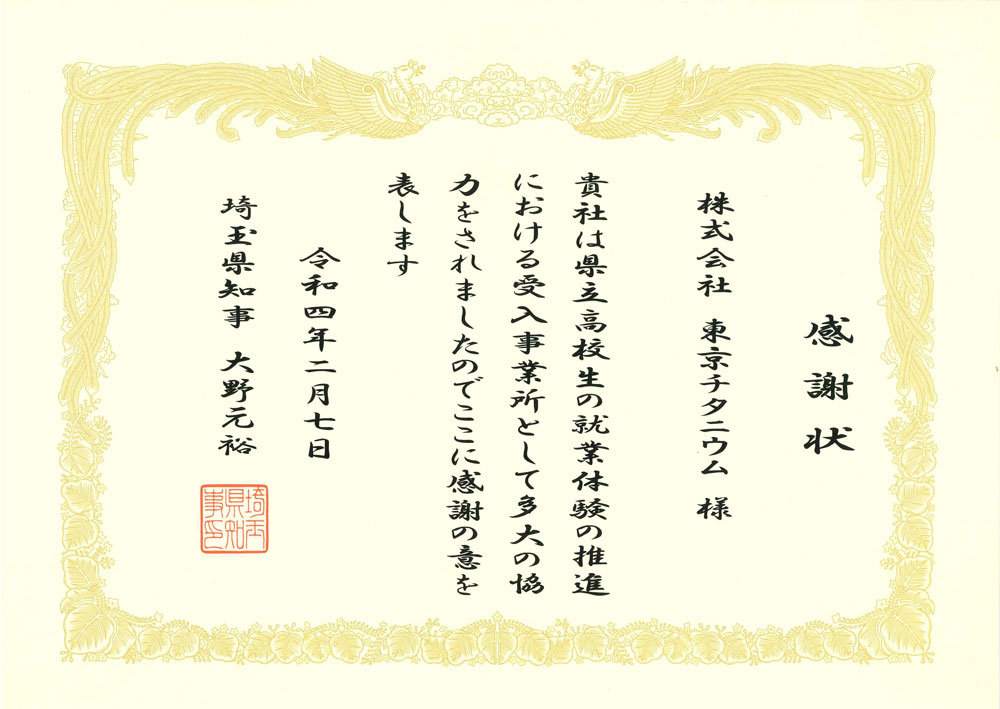 感謝状
株式会社 東京チタニウム 様
貴社は県立高校生の就業体験の推進
における受入事業所として多大の協
力をされましたのでここに感謝の意を
表します
令和四年二月七日
埼玉県知事 大野元裕
埼玉
県知
事印